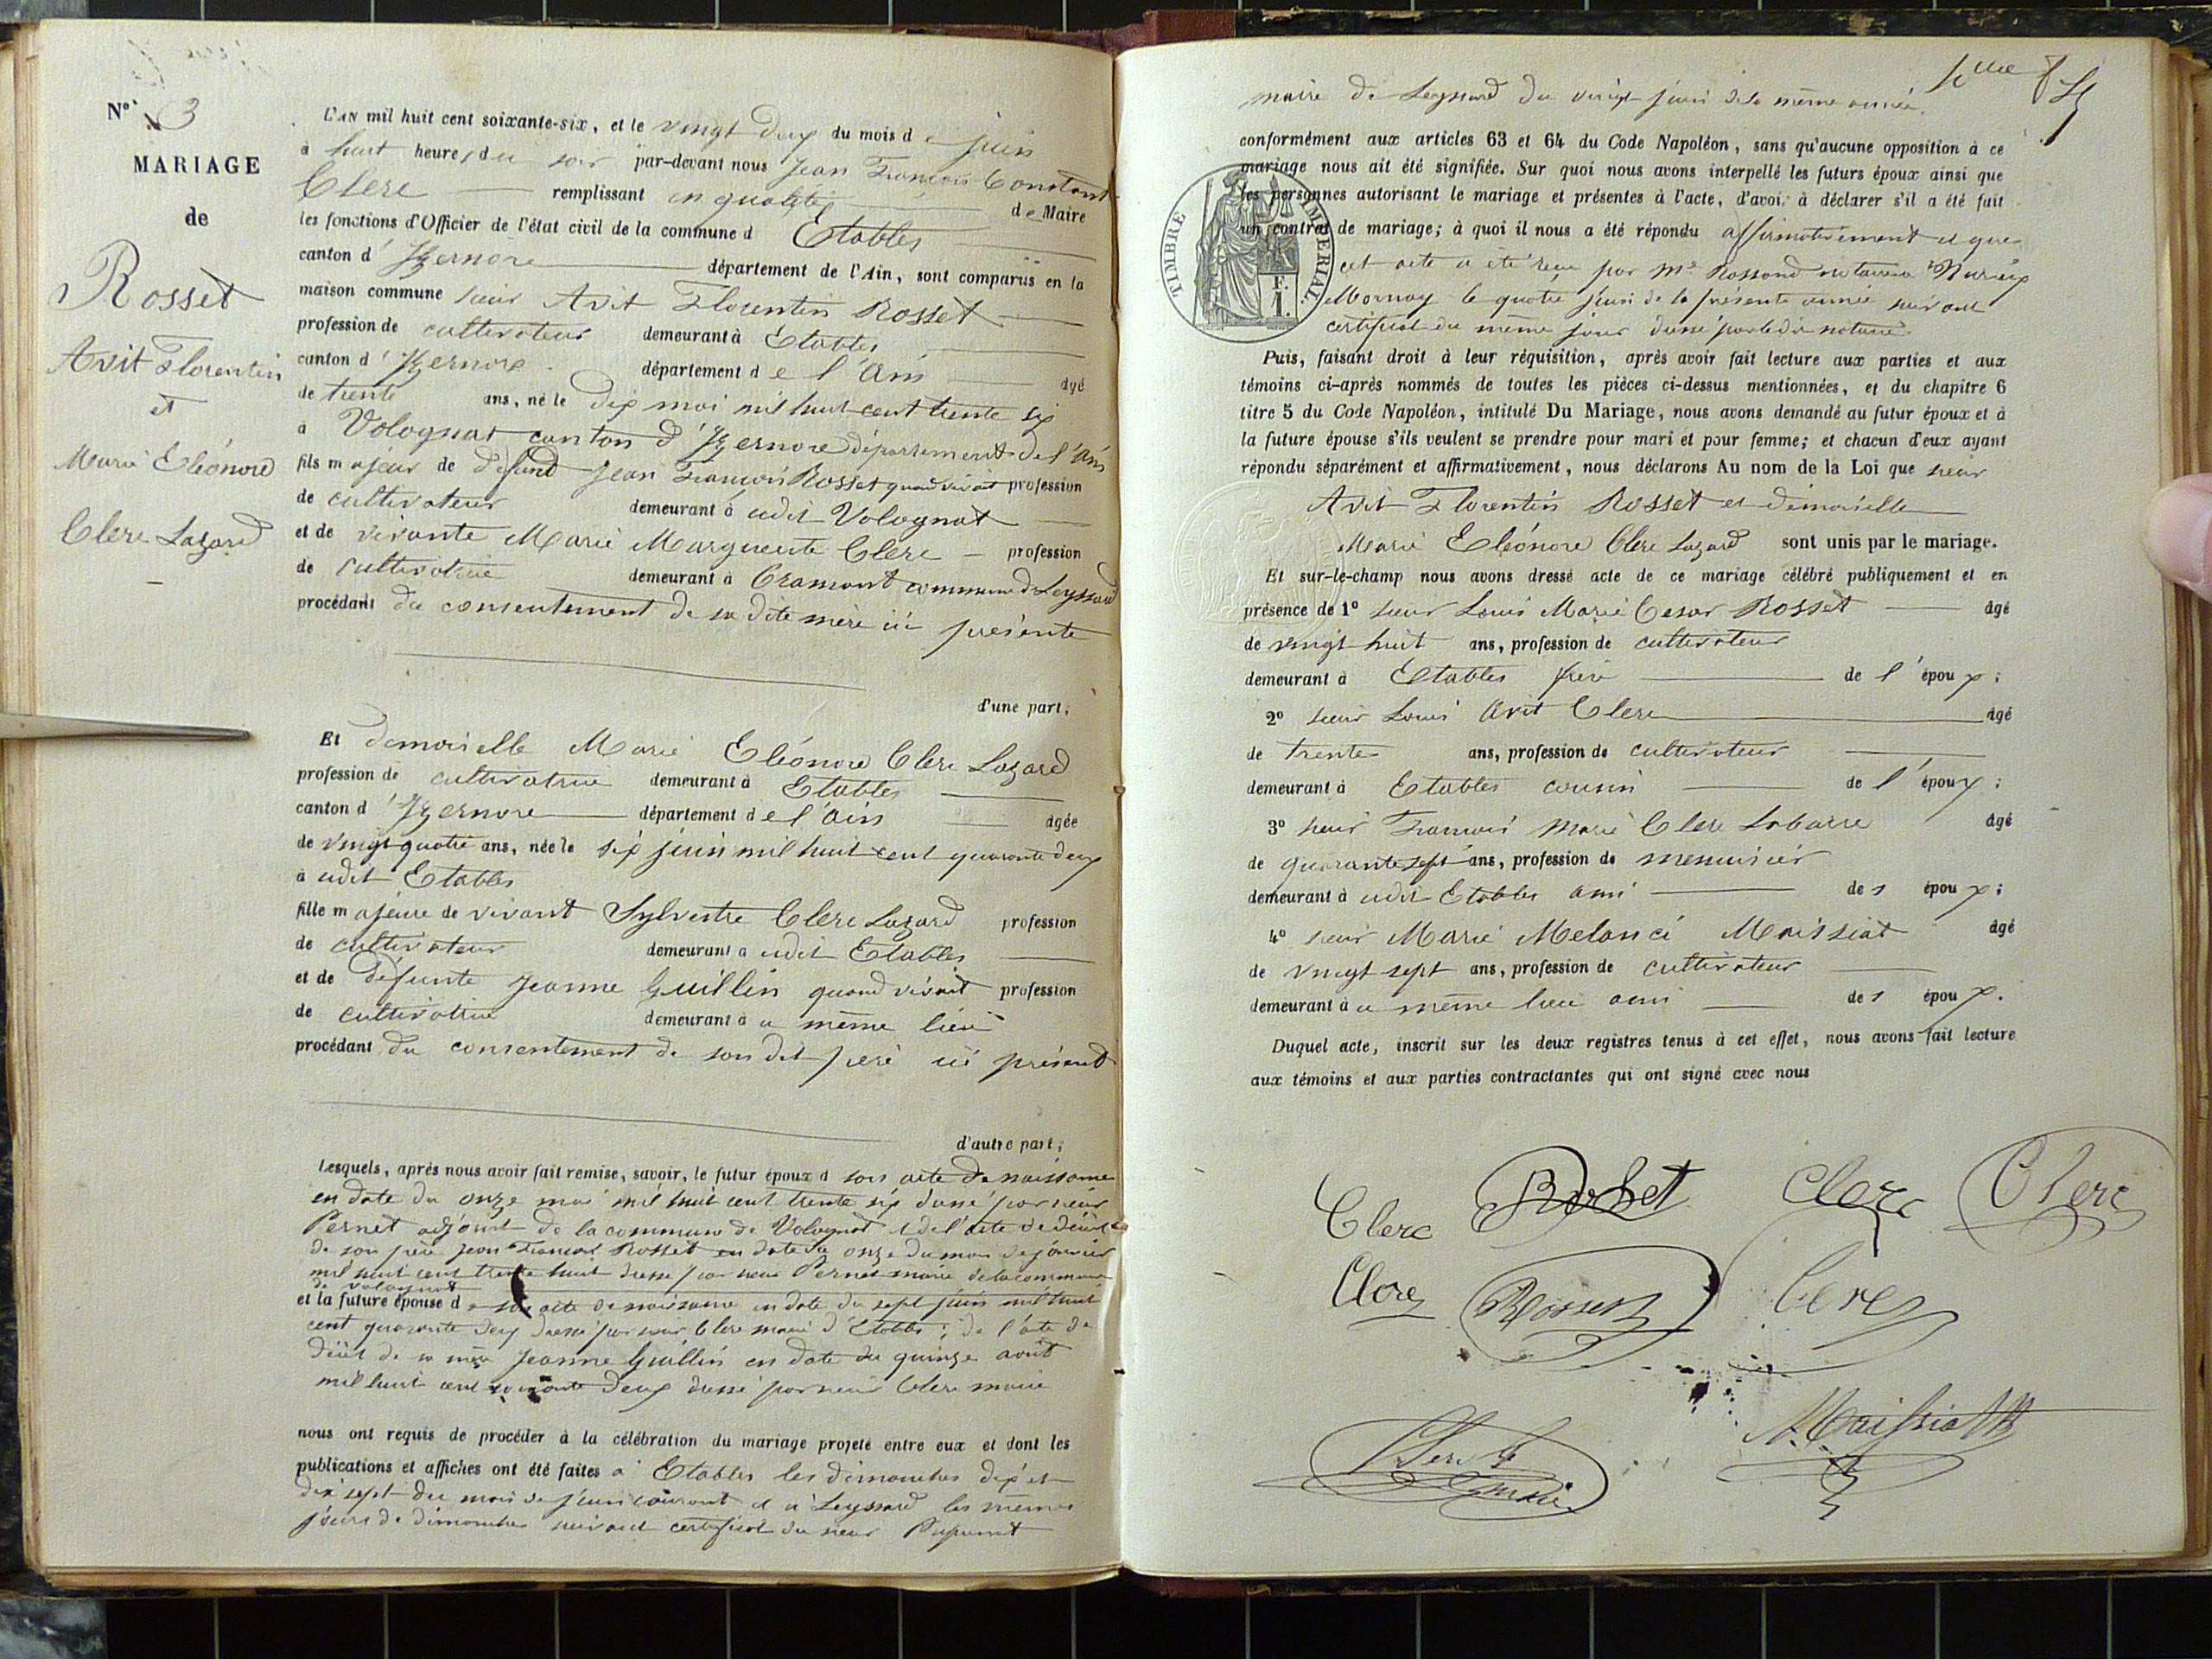 N° 3
MARIAGE
de
Rosset
Avit Florentin
et
Marie Eléonore
Clerc Lazard
L'AN mil huit cent soixante-six, et le vingt deux du mois de juin
à huit heures du soir par-devant nous Jean François Constant
Clerc remplissant en qualité de Maire
les fonctions d'Officier de l'état civil de la commune d Etables
canton d'Izernore département de l'Ain, sont comparus en la
maison commune sieur Avit Florentin Rosset
profession de cultivateur demeurant à Etables
canton d'Izernore département de l'Ain âgé
de trente ans, né le dix mai mil huit cent trente six
à Volognat canton d'Izernore département de l'Ain
fils majeur de défunt Jean François Rosset quand vivait profession
de cultivateur demeurant à udit Volognat
et de vivante Marie Marguerite Clerc profession
de cultivatrice demeurant à Cramont commune de Leyssard
procédant du consentement de sa dite mère ici présente
d'une part;
Et demoiselle Marie Eléonore Clerc Lazard
profession de cultivatrice demeurant à Etables
canton d'Izernore département de l'Ain âgée
de vingt quatre ans, née le six juin mil huit cent quarante deux
à udit Etables
fille majeure de vivant Sylvestre Clerc Lazard profession
de cultivateur demeurant a udit Etables
et de défunte Jeanne Guillin quand vivait profession
de cultivatrice demeurant à u même lieu
procédant du consentement de son dit père ici présent
d'autre part;
Lesquels, après nous avoir fait remise, savoir, le futur époux d son acte de naissance
en date du onze mai mil huit cent trente six dressé par sieur
Pernet adjoint de la commune de Volognat et de l'acte de décès
de son père Jean François Rosset en date du onze du mois de janvier
mil huit cent trente huit dressé par sieur Pernet maire de la commune
de Volognat
et la future épouse de son acte de naissance en date du sept juin mil huit
cent quarante deux dressé par sieur Clerc maire d'Etables; de l'acte de
décès de sa mère Jeanne Guillin en date du quinze août
mil huit cent deux dressé par sieur Clerc maire
nous ont requis de procéder à la célébration du mariage projeté entre eux et dont les
publications et affiches ont été faites à Etables les dimanches dix et
dix sept du mois de juin courant et à Leyssard les mêmes
jours de dimanche suivant certificat du sieur
maire de Leyssard du vingt juin de la même année
conformément aux articles 63 et 64 du Code Napoléon, sans qu'aucune opposition à ce
mariage nous ait été signifiée. Sur quoi nous avons interpellé les futurs époux ainsi que
les personnes autorisant le mariage et présentes à l'acte, d'avoir à déclarer s'il a été fait
un contrat de mariage; à quoi il nous a été répondu affirmativement et que
cet acte a été reçu par Me notaire
Mornay le quatre juin de la présente année suivant
certificat du même jour dressé par le dit notaire
TIMBRE IMPERIAL.
F.
1.
Puis, faisant droit à leur réquisition, après avoir fait lecture aux parties et aux
témoins ci-après nommés de toutes les pièces ci-dessus mentionnées, et du chapitre 6
titre 5 du Code Napoléon, intitulé Du Mariage, nous avons demandé au futur époux et à
la future épouse s'ils veulent se prendre pour mari et pour femme; et chacun d'eux ayant
répondu séparément et affirmativement, nous déclarons Au nom de la Loi que sieur
Avit Florentin Rosset et demoiselle
Marie Eléonore Clerc Lazard sont unis par le mariage.
Et sur-le-champ nous avons dressé acte de ce mariage célébré publiquement et en
présence de 1° sieur Louis Marie Cesar Rosset âgé
de vingt huit ans, profession de cultivateur
demeurant à Etables frère de l'époux;
2° sieur Louis Avit Clerc âgé
de trente ans, profession de cultivateur
demeurant à Etables cousin de l'époux;
3° sieur François Marie Clerc Labarre âgé
de quarante sept ans, profession de menuisier
demeurant à udit Etables ami des époux;
4° sieur Marie Melanci Maissiat âgé
de vingt sept ans, profession de cultivateur
demeurant à u même lieu ami des époux.
Duquel acte, inscrit sur les deux registres tenus à cet effet, nous avons fait lecture
aux témoins et aux parties contractantes qui ont signé avec nous
Clerc Rosset Clerc Clerc
Clerc Rosset Clerc
Clerc Maissiat